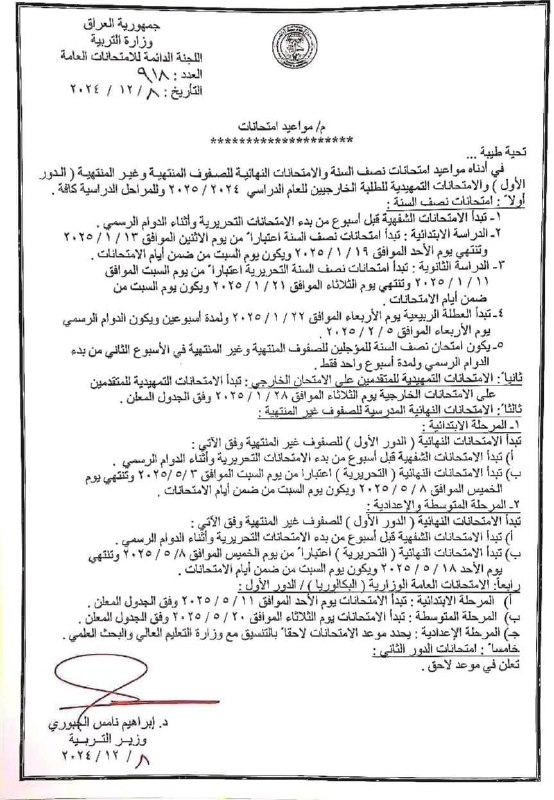 جمهورية العراق
وزارة التربية
اللجنة الدائمة للامتحانات العامة
العدد : ٩١٨
التأريخ : ٨ / ١٢ / ٢٠٢٤
م/ مواعيد امتحانات
********************
تحية طيبة ...
في أدناه مواعيد امتحانات نصف السنة والامتحانات النهائية للصفوف المنتهية وغير المنتهية ( الدور
الأول ) والامتحانات التمهيدية للطلبة الخارجيين للعام الدراسي ٢٠٢٤ / ٢٠٢٥ وللمراحل الدراسية كافة .
أولاً : امتحانات نصف السنة :
١- تبدأ الامتحانات الشفهية قبل أسبوع من بدء الامتحانات التحريرية وأثناء الدوام الرسمي .
٢- الدراسة الابتدائية : تبدأ امتحانات نصف السنة اعتباراً من يوم الاثنين الموافق ١٣ / ١ / ٢٠٢٥
وتنتهي يوم الأحد الموافق ١٩ / ١ / ٢٠٢٥ ويكون يوم السبت من ضمن أيام الامتحانات .
٣- الدراسة الثانوية : تبدأ امتحانات نصف السنة التحريرية اعتباراً من يوم السبت الموافق
١١ / ١ / ٢٠٢٥ وتنتهي يوم الثلاثاء الموافق ٢١ / ١ / ٢٠٢٥ ويكون يوم السبت من
ضمن أيام الامتحانات .
٤- تبدأ العطلة الربيعية يوم الأربعاء الموافق ٢٢ / ١ / ٢٠٢٥ ولمدة أسبوعين ويكون الدوام الرسمي
يوم الأربعاء الموافق ٥ / ٢ / ٢٠٢٥ .
٥- يكون امتحان نصف السنة للمؤجلين للصفوف المنتهية وغير المنتهية في الأسبوع الثاني من بدء
الدوام الرسمي ولمدة أسبوع واحد فقط .
ثانياً: الامتحانات التمهيدية للمتقدمين على الامتحان الخارجي : تبدأ الامتحانات التمهيدية للمتقدمين
على الامتحانات الخارجية يوم الثلاثاء الموافق ٢٨ / ١ / ٢٠٢٥ وفق الجدول المعلن .
ثالثاً: الامتحانات النهائية المدرسية للصفوف غير المنتهية :
١- المرحلة الابتدائية :
تبدأ الامتحانات النهائية ( الدور الأول ) للصفوف غير المنتهية وفق الآتي :
أ) تبدأ الامتحانات الشفهية قبل أسبوع من بدء الامتحانات التحريرية وأثناء الدوام الرسمي .
ب) تبدأ الامتحانات النهائية ( التحريرية ) اعتباراً من يوم السبت الموافق ٣ /٥ /٢٠٢٥ وتنتهي يوم
الخميس الموافق ٨ / ٥ / ٢٠٢٥ ويكون يوم السبت من ضمن أيام الامتحانات .
٢- المرحلة المتوسطة والإعدادية :
تبدأ الامتحانات النهائية ( الدور الأول ) للصفوف غير المنتهية وفق الآتي :
أ) تبدأ الامتحانات الشفهية قبل أسبوع من بدء الامتحانات التحريرية وأثناء الدوام الرسمي .
ب) تبدأ الامتحانات النهائية ( التحريرية ) اعتباراً من يوم الخميس الموافق ٨ /٥ / ٢٠٢٥ وتنتهي
يوم الأحد ١٨ / ٥ / ٢٠٢٥ ويكون يوم السبت من ضمن أيام الامتحانات .
رابعاً: الامتحانات العامة الوزارية ( البكالوريا ) / الدور الأول :
أ) المرحلة الابتدائية : تبدأ الامتحانات يوم الأحد الموافق ١١ / ٥ / ٢٠٢٥ وفق الجدول المعلن .
ب) المرحلة المتوسطة : تبدأ الامتحانات يوم الثلاثاء الموافق ٢٠ / ٥ / ٢٠٢٥ وفق الجدول المعلن .
جـ) المرحلة الإعدادية : يحدد موعد الامتحانات لاحقاً بالتنسيق مع وزارة التعليم العالي والبحث العلمي .
خامساً : امتحانات الدور الثاني :
تعلن في موعد لاحق .
د. إبراهيم نامس الجبوري
وزير التربية
٨ / ١٢ / ٢٠٢٤